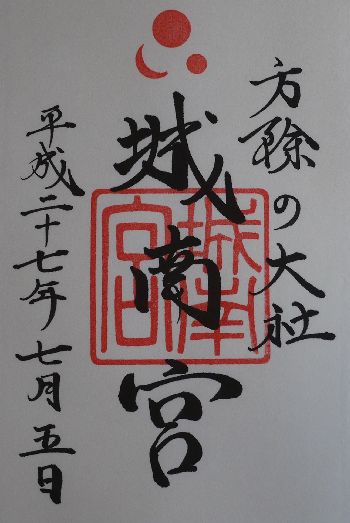 方除の大社
城南宮
城南宮
平成二十七年七月五日